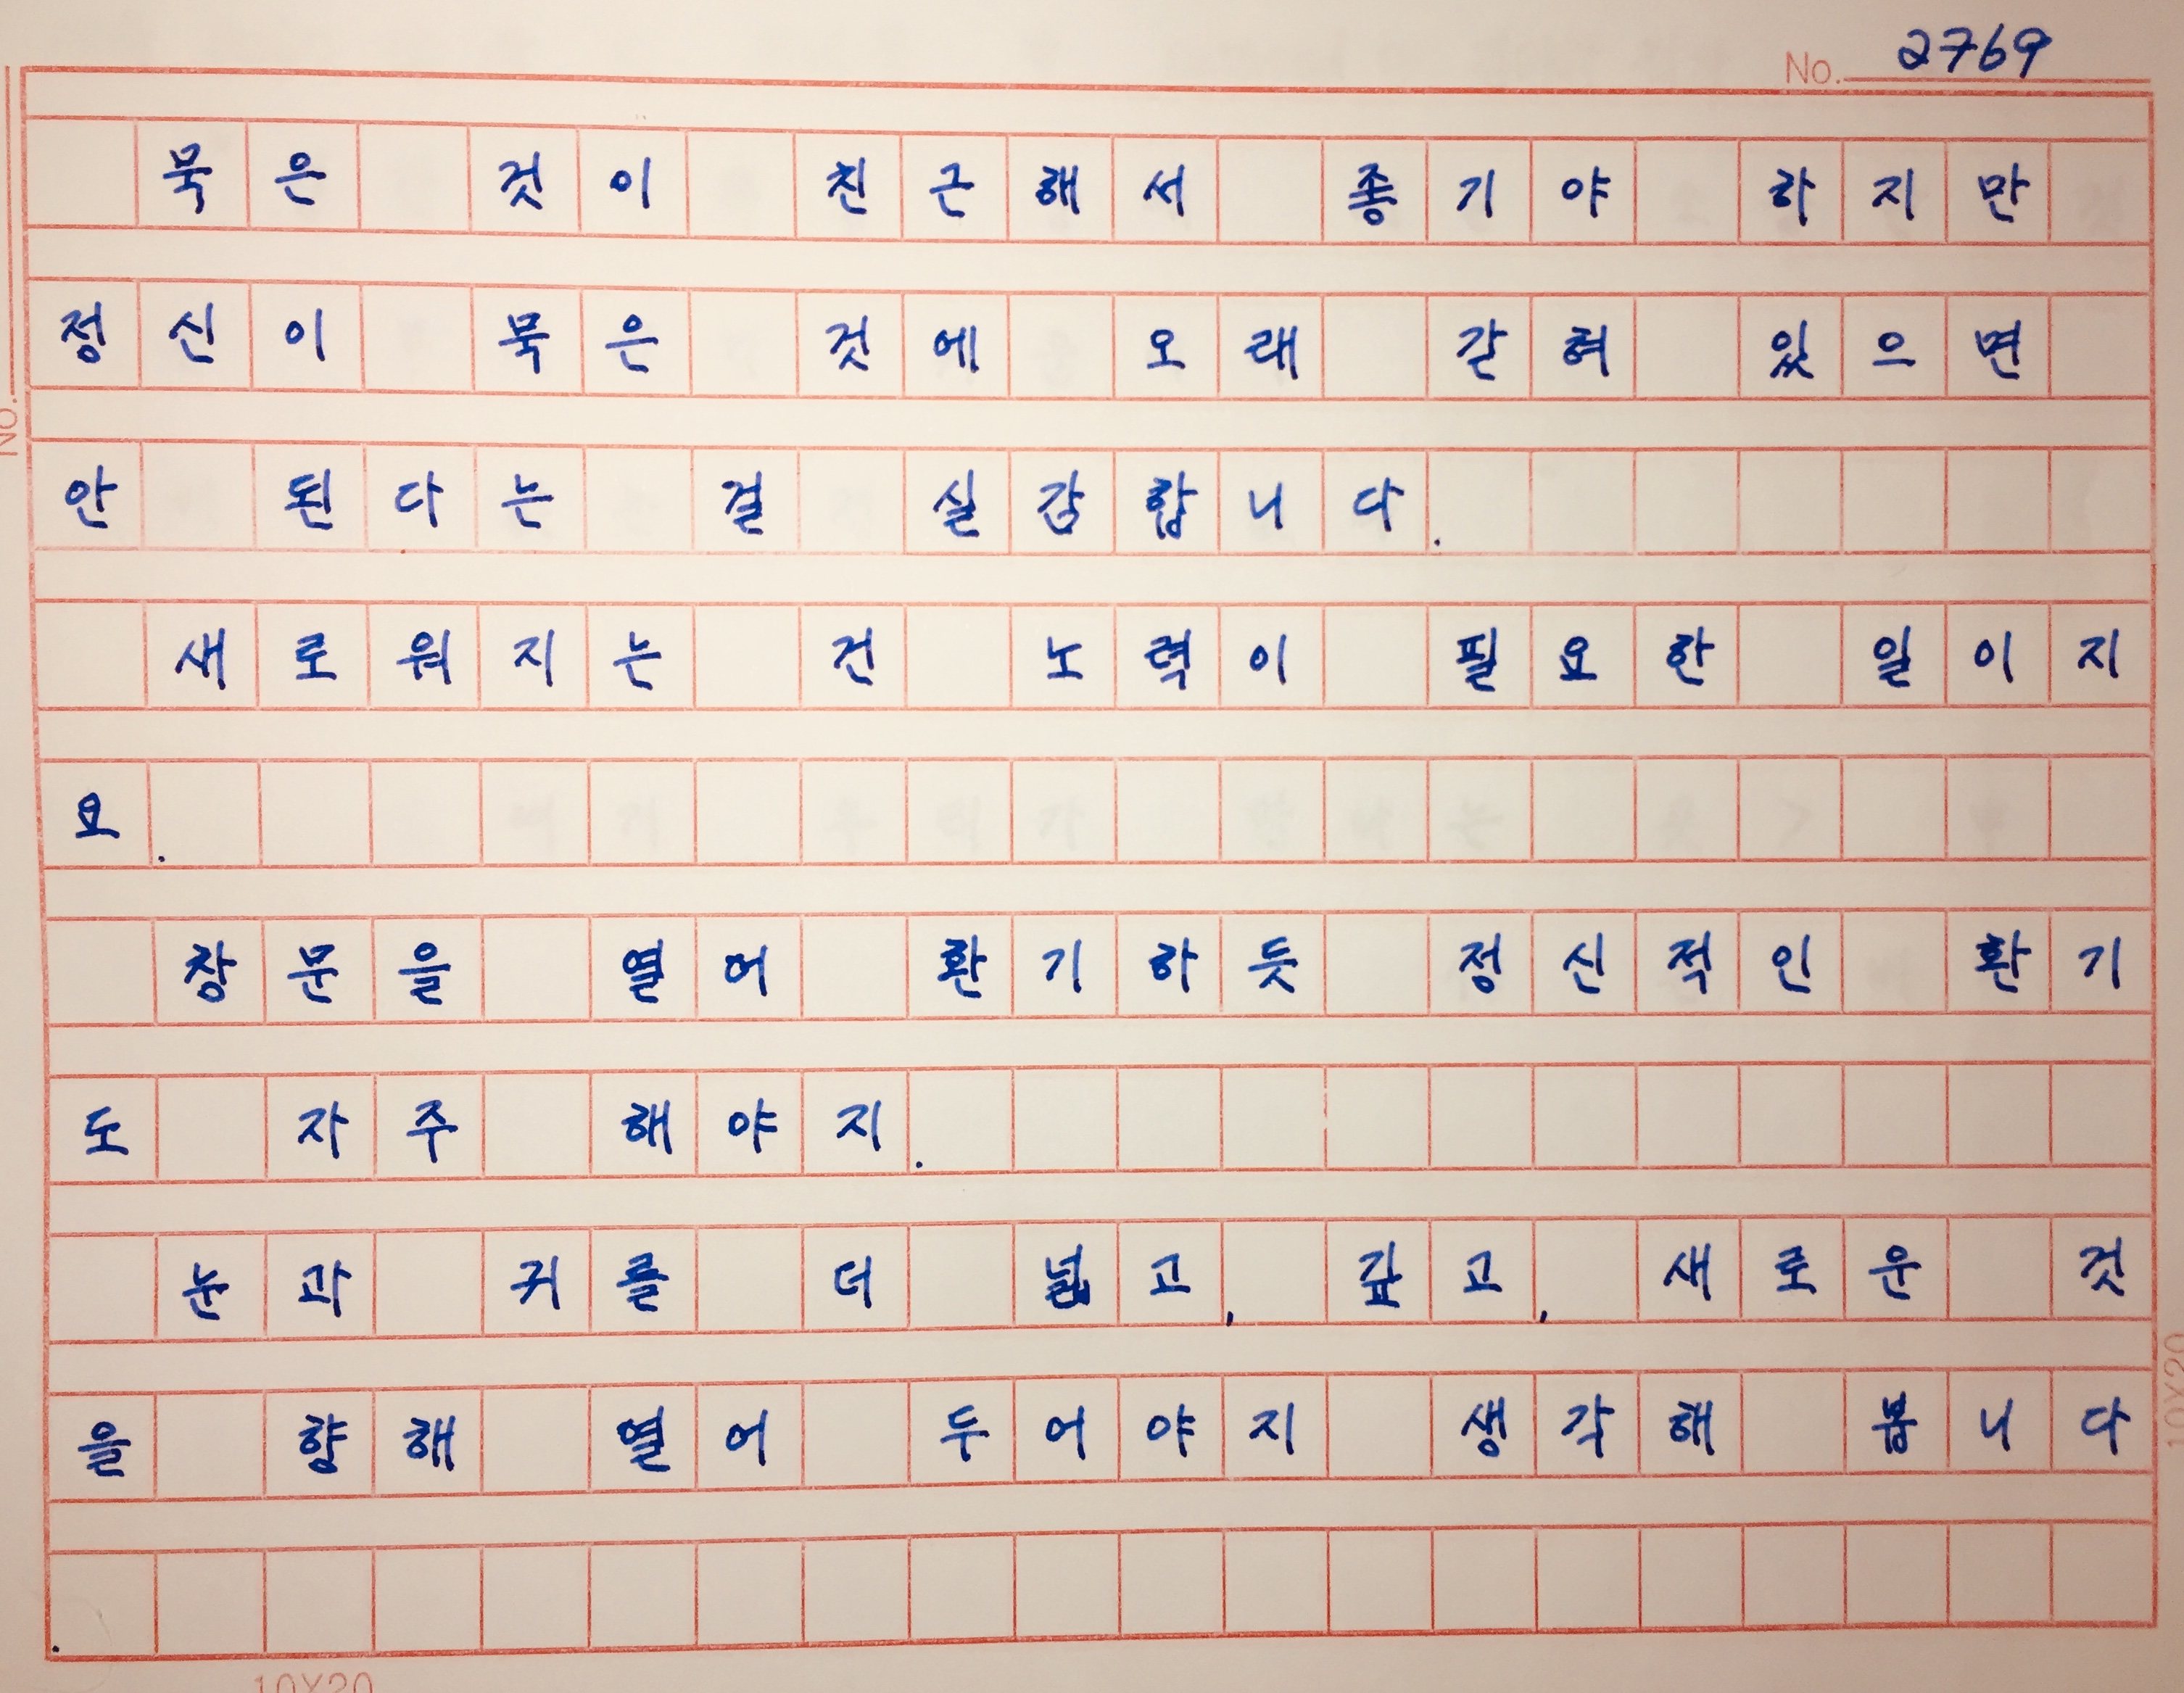 No. 2769
묵은 것이 친근해서 좋기야 하지만
정신이 묵은 것에 오래 갇혀 있으면
안 된다는 걸 실감합니다.
새로워지는 건 노력이 필요한 일이지
요.
창문을 열어 환기하듯 정신적인 환기
도 자주 해야지.
눈과 귀를 더 넓고, 깊고, 새로운 것
을 향해 열어 두어야지 생각해 봅니다
.
No.
10X20
10X20